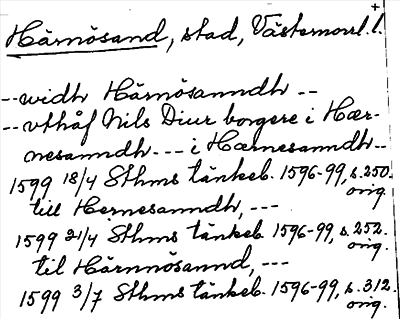 Härnösand, stad, Västernorrl. l.
-- widh Härnösanndh --
-- vthåf Nils Diur borgere i Hær-
nesanndh --- i Hærnesanndh --
1599 18/4 Sthms tänkeb. 1596-99, s. 250.
orig.
till Hernesanndh, ---
1599 21/4 Sthms tänkeb. 1596-99, s. 252.
orig.
til Härnnösannd, ---
1599 3/7 Sthms tänkeb. 1596-99, s. 312.
orig.